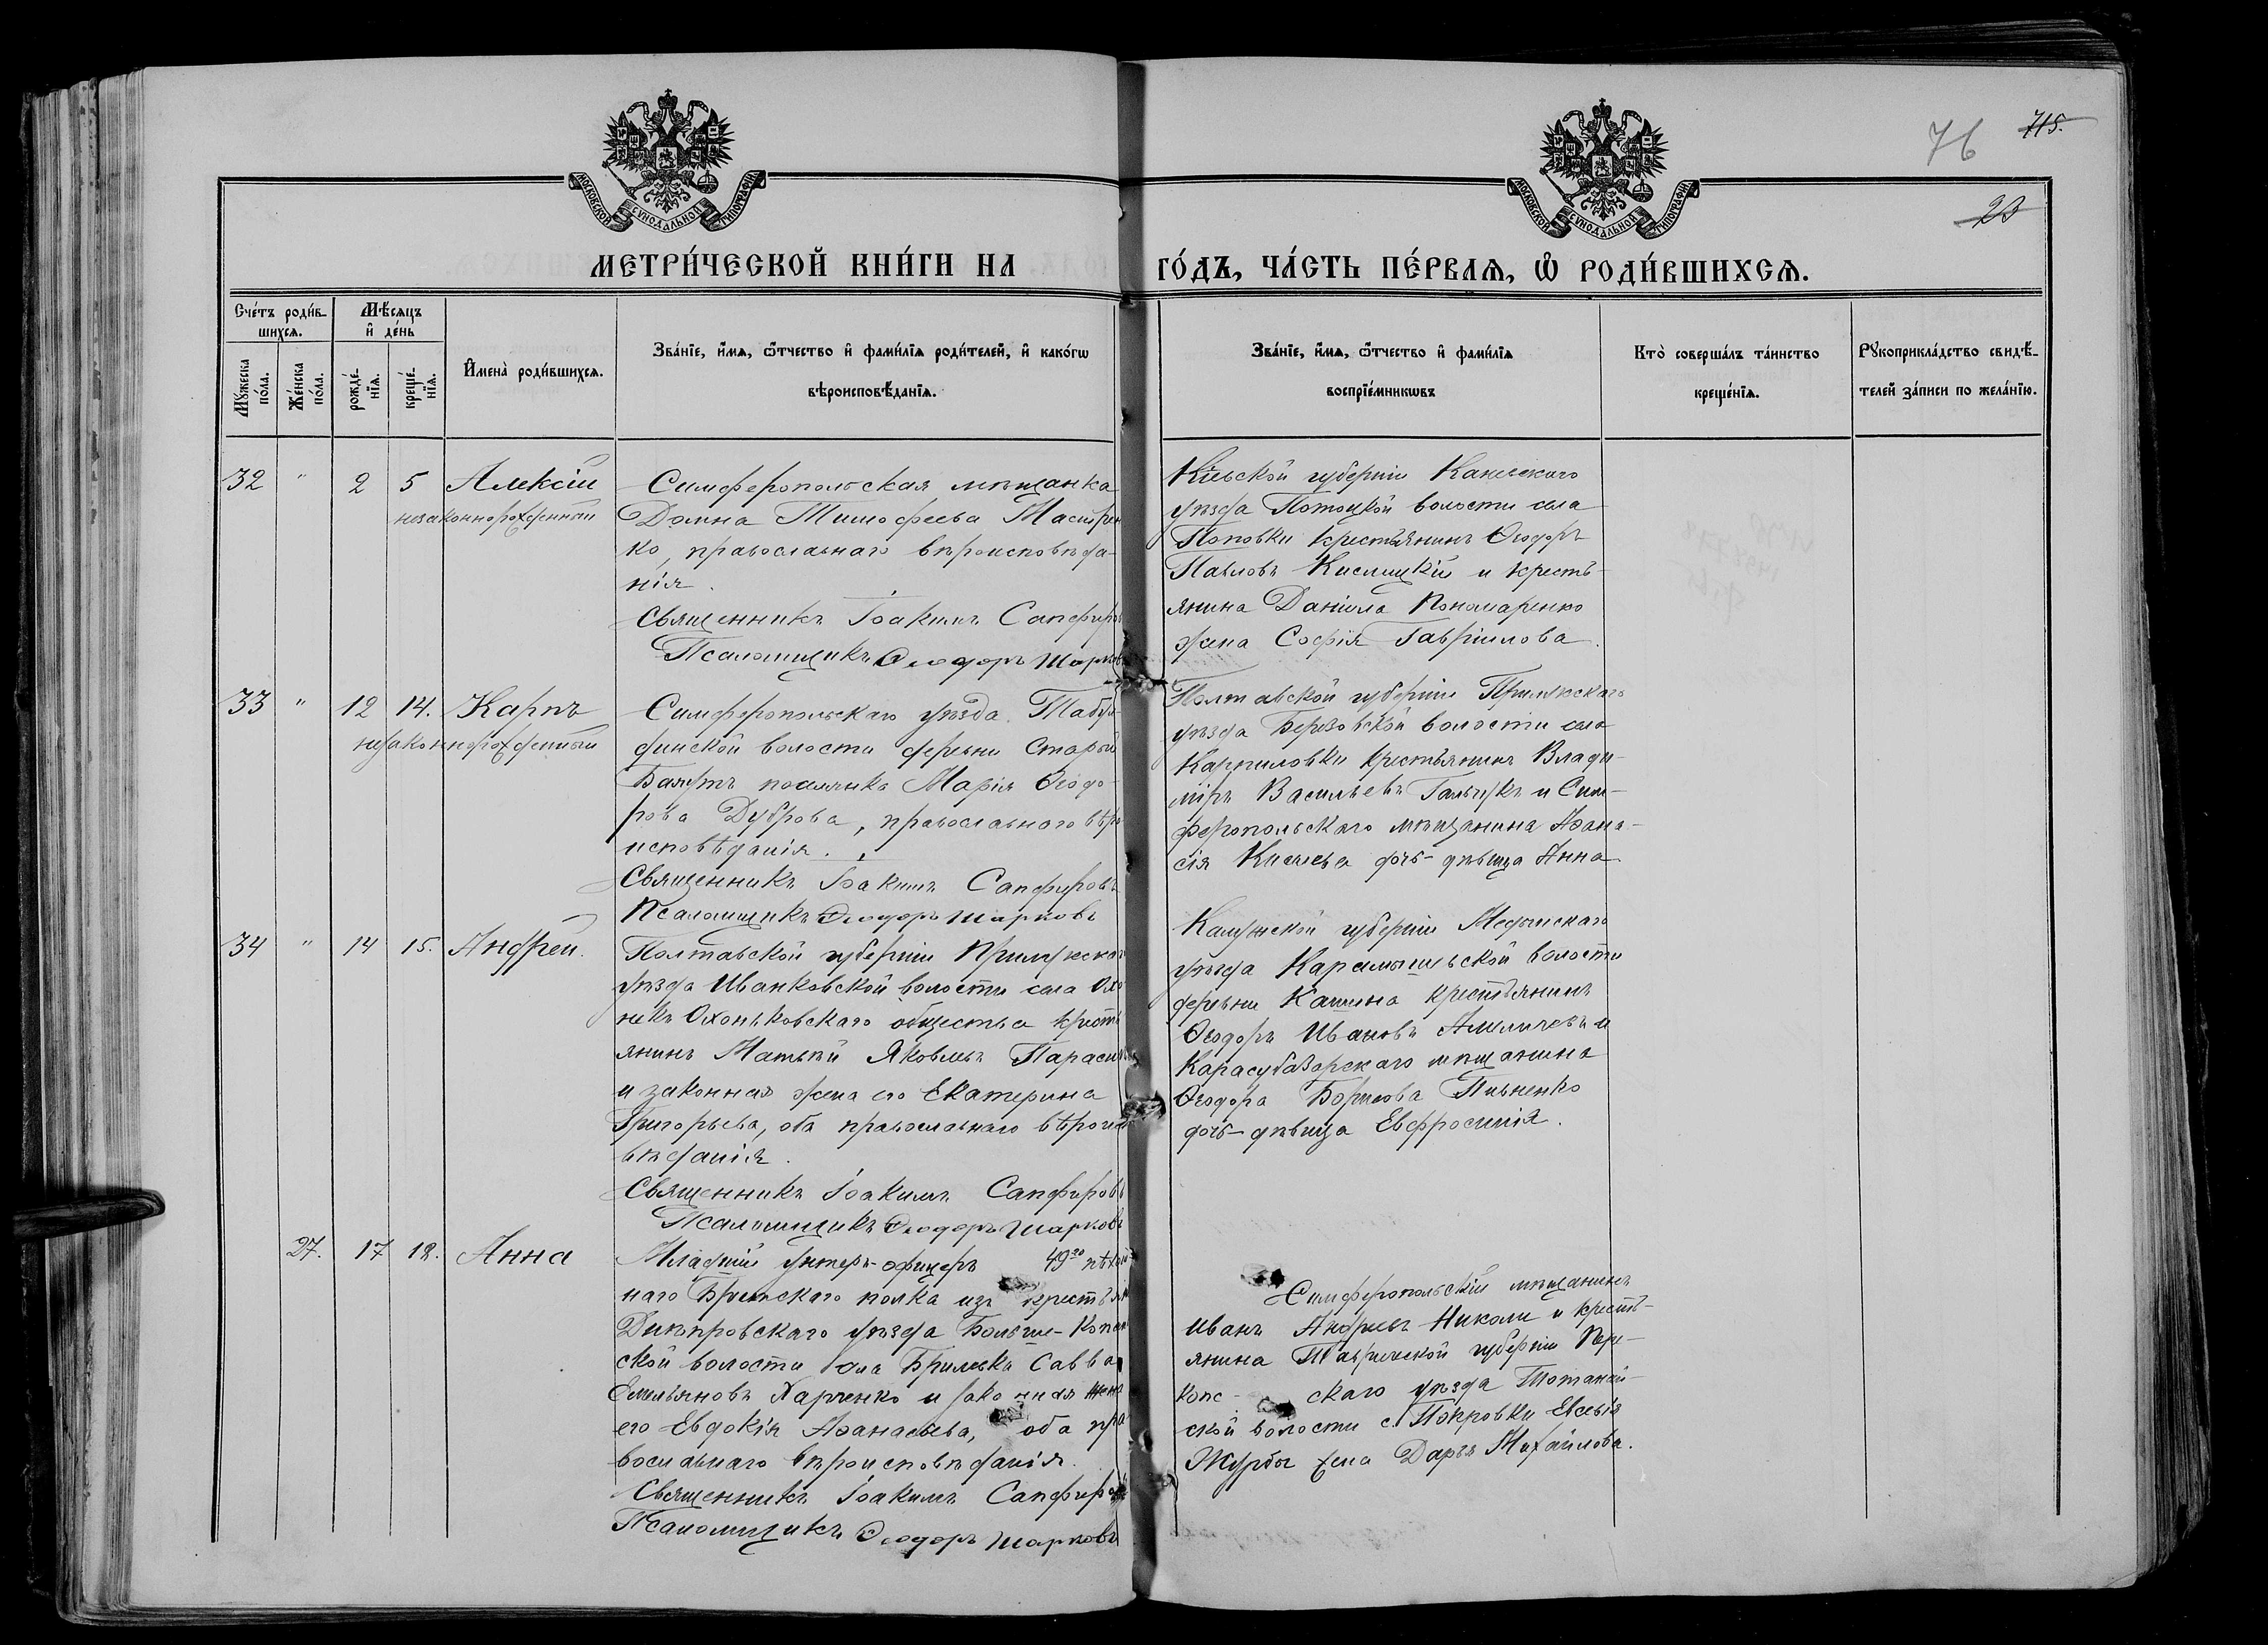 МОСКОВСКОЙ СУНОДАЛЬНОЙ ТИПОГРАФІИ
МОСКОВСКОЙ СУНОДАЛЬНОЙ ТИПОГРАФІИ
76
715.
23
МЕТРИ́ЧЕСКОЙ КНИ́ГИ НА
ГО́ДЪ, ЧА́СТЬ ПЕ́РВАѦ, Ѽ РОДИ́ВШИХСѦ.
Сче́тъ роди́в-
шихсѧ.
Мѣ́сѧцъ
и҆ де́нь
Мꙋжеска по́ла.
Же́нска по́ла.
рожде́-
нїѧ.
креще́-
нїѧ.
И҆мена̀ роди́вшихсѧ.
Зва́нїе, и҆́мѧ, ѻ҆́тчество и҆ фами́лїѧ роди́телей, и҆ како́гѡ
вѣроисповѣ́данїѧ.
Зва́нїе, и҆́мѧ, ѻ҆́тчество и҆ фами́лїѧ
воспрїе́мникѡвъ
Кто̀ соверша́лъ та́инство
креще́нїѧ.
Рꙋкоприкла́дство свидѣ́-
телей за́писи по жела́нїю.
32 " 2 5 Алексій
незаконнорожденный
Симферопольская мѣщанка
Домна Тимофеева
ко, православнаго вѣроисповѣда-
нія.
Священникъ Іоакимъ Сапфировъ
Псаломщикъ Ѳеодоръ Шарковъ
Кіевской губерніи Каневскаго
уѣзда Потоцкой волости села
Поповки крестьянинъ Ѳеодоръ
Павловъ Кислицкій и кресть-
янина Даніила Пономаренко
жена Софія Гавріилова.
33 " 12 14. Карпъ
незаконнорожденный
Симферопольскаго уѣзда Табул-
динской волости деревни Старый
Баяутъ поселянка Марія Ѳеодо-
рова Дуброва, православнаго вѣро
исповѣданія.
Священникъ Іоакимъ Сапфировъ
Псаломщикъ Ѳеодоръ Шарковъ
Полтавской губерніи Прилукскаго
уѣзда Березовской волости села
Карпиловки крестьянинъ Влади-
міръ Васильевъ и Сим-
феропольскаго мѣщанина Аѳана-
сія Киселева дочь-дѣвица Анна
34 " 14 15. Андрей.
Полтавской губерніи Прилукскаго
уѣзда Иванковской волости села
Охоньковскаго общества кресть
янинъ Матвѣй Яковлевъ
и законная жена его Екатерина
Григорьева, оба православнаго вѣроиспо
вѣданія.
Священникъ Іоакимъ Сапфировъ
Псаломщикъ Ѳеодоръ Шарковъ
Калужской губерніи Медынскаго
уѣзда Карамышевской волости
деревни крестьянинъ
Ѳеодоръ Ивановъ и
Карасубазарскаго мѣщанина
Ѳеодора Борисова Пивненко
дочь-дѣвица Евфросинія.
27. 17 18. Анна
Младшій унтеръ-офицеръ 49го пѣхот
наго Брестскаго полка изъ крестьянъ
Днѣпровскаго уѣзда Больше-Копан
ской волости села Брилевки Савва
Емельяновъ Харченко и законная жена
его Евдокія Аѳанасьева, оба пра
вославнаго вѣроисповѣданія.
Священникъ Іоакимъ Сапфировъ
Псаломщикъ Ѳеодоръ Шарковъ
Симферопольскій мѣщанинъ
Иванъ Андреевъ Николи и кресть-
янина Таврической губерніи Пере-
копс- скаго уѣзда Тотанай-
ской волости с. Покровки Евсевія
Журбы жена Дарья Михайлова.